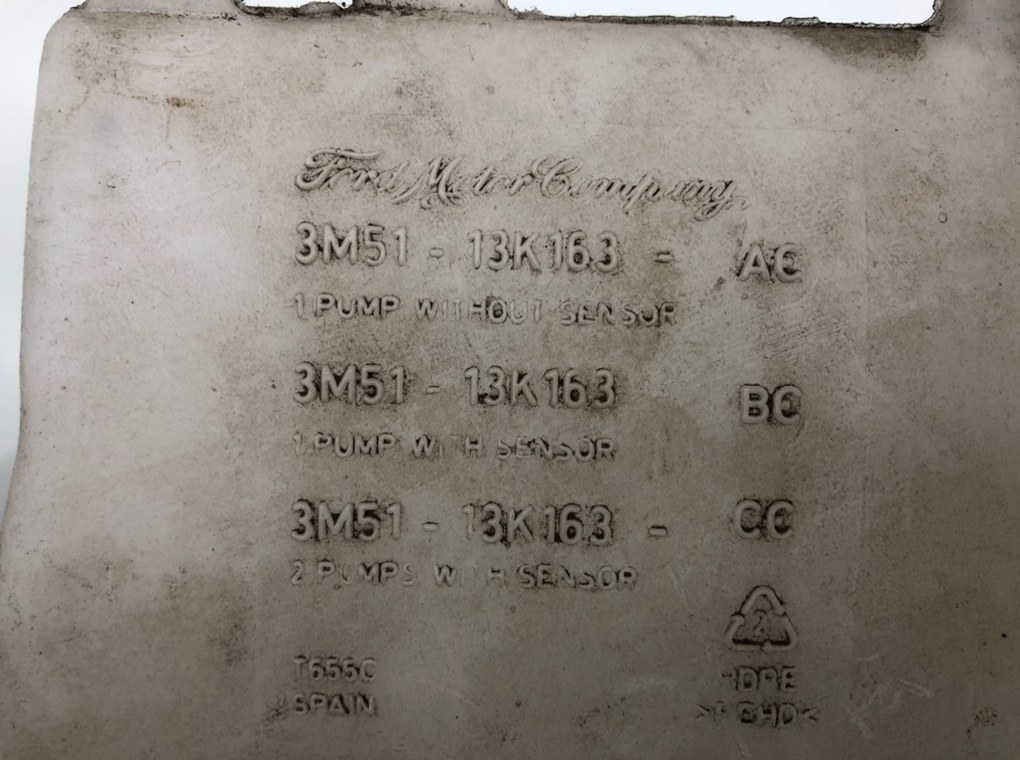 Ford Motor Company
3M51 - 13K163 - AC
1 PUMP WITHOUT SENSOR
3M51 - 13K163 BC
1 PUMP WITH SENSOR
3M51 - 13K163 - CC
2 PUMPS WITH SENSOR
2
T655C HDPE
SPAIN